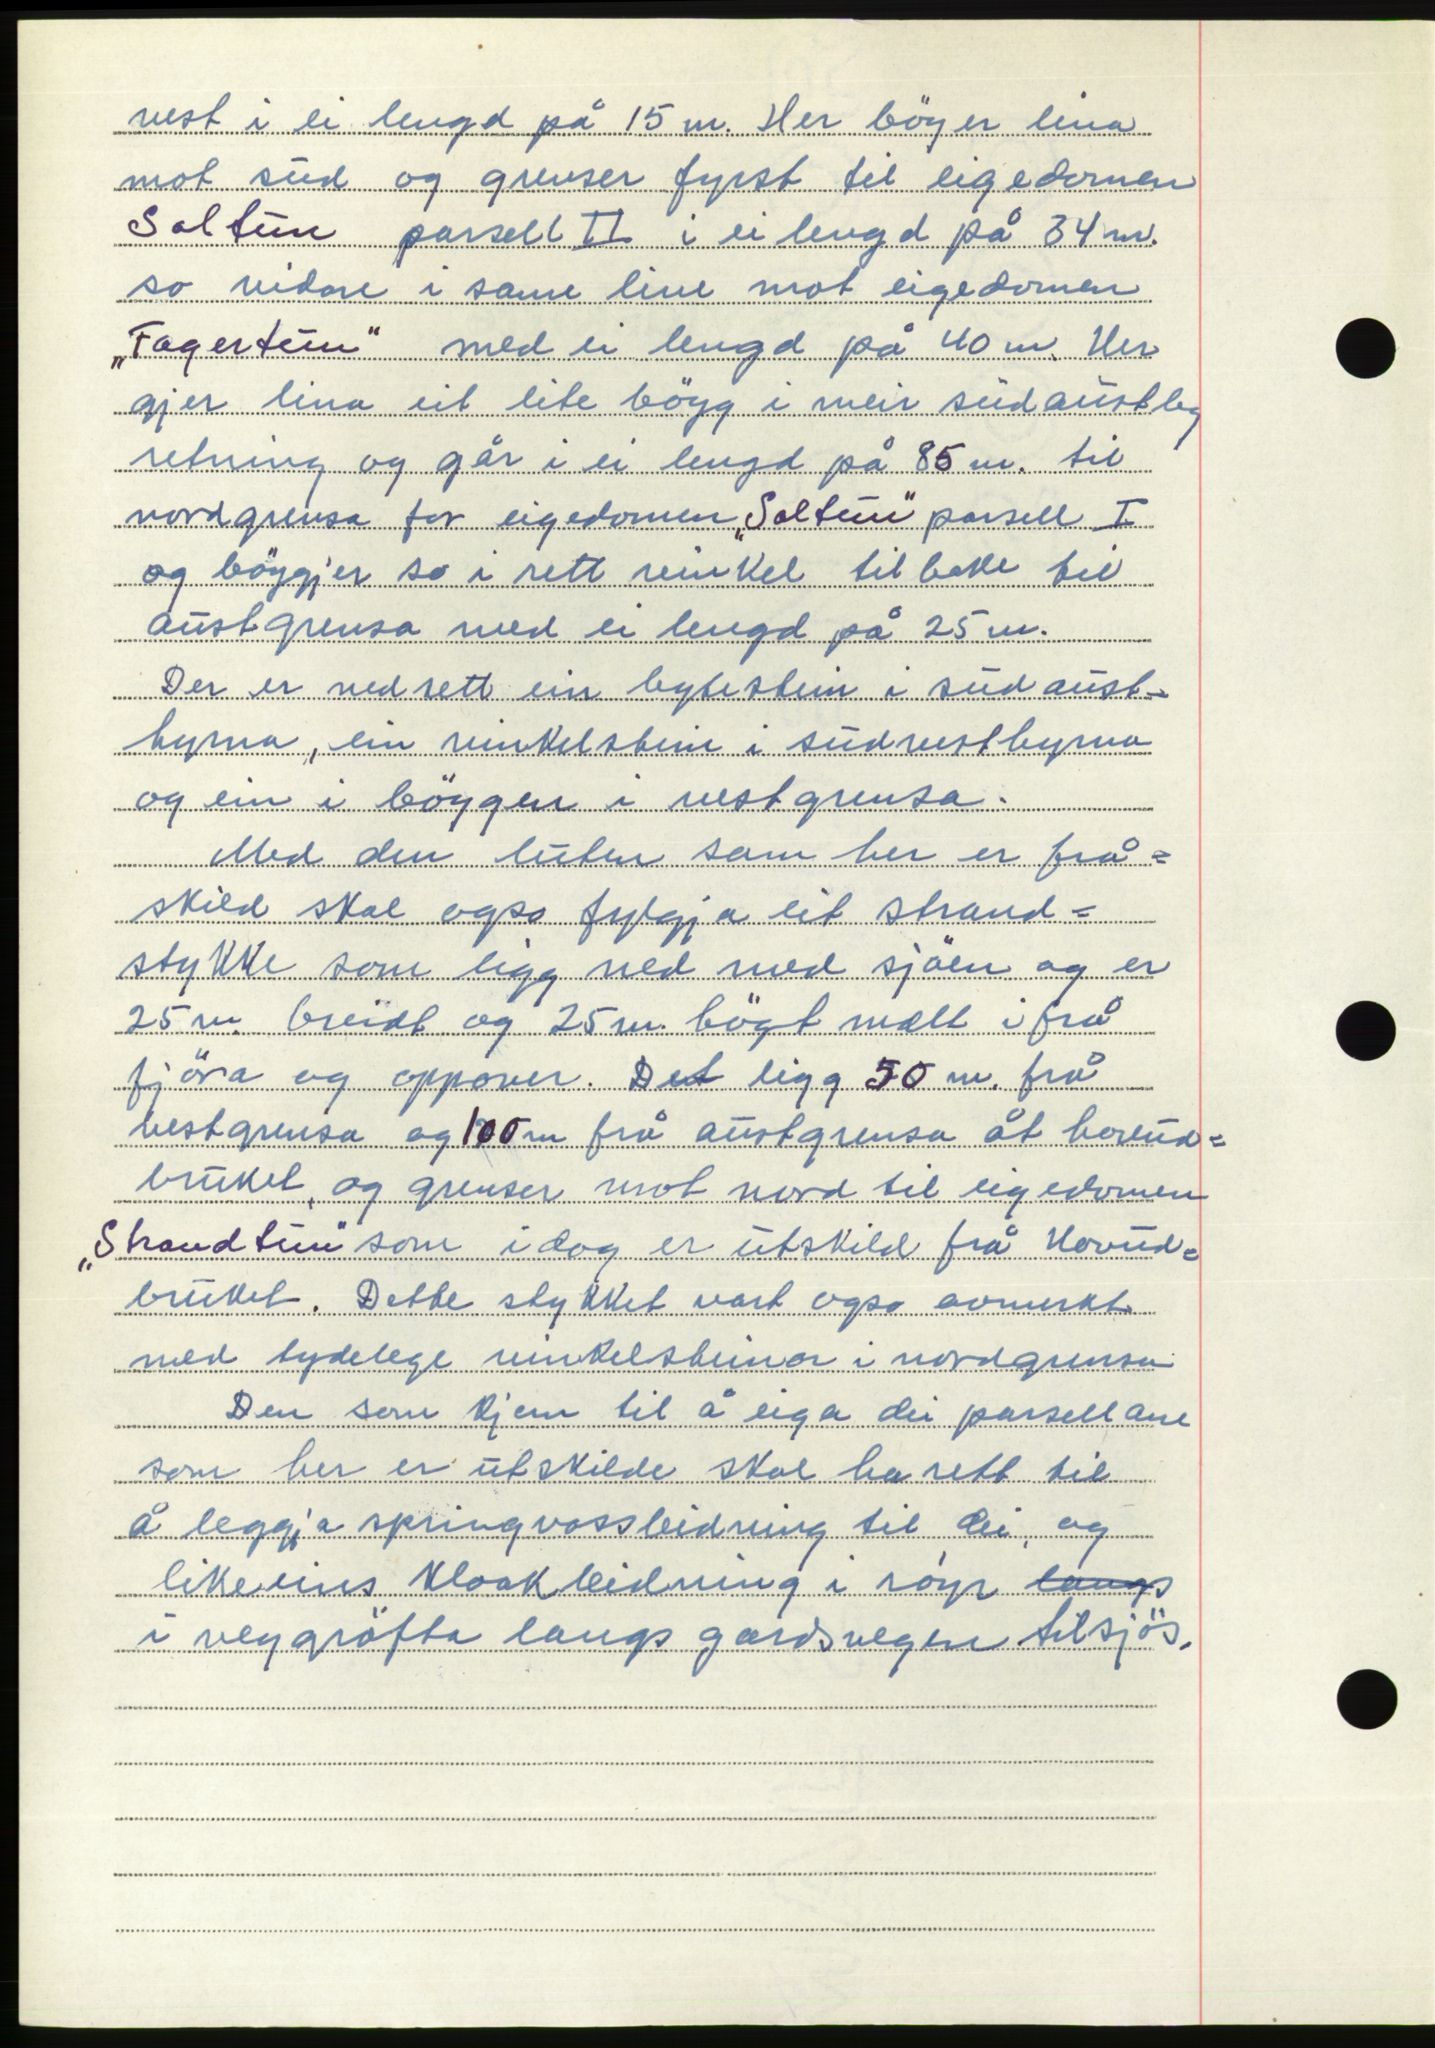 vest i ei lengd på 15 m. Her böyer lina
mot sud og grenser fyrst til eigedomen
Soltun parsell II i ei lengd på 34 m.
so vidare i same line mot eigedomen
„Fagertun“ med ei lengd på 40 m. Her
gjer lina eit lite böyg i meir sudaustleg
retning og går i ei lengd på 85 m. til
nordgrensa for eigedomen „Soltun“ parsell I
og böygjer so i rett vinkel tilbake til
austgrensa med ei lengd på 25 m.
Der er nedsett ein bytestein i sudaust-
hyrna, ein vinkelstein i sudvesthyrna
og ein i böygen i vestgrensa.
Med den luten som her er frå=
skild skal ogso fylgja eit strand=
stykke som ligg ned med sjöen og er
25 m. breidt og 25 m. högt mælt ifrå
fjöra og oppover. Det ligg 50 m. frå
vestgrensa og 100 m frå austgrensa åt hovud=
bruket, og grenser mot nord til eigedomen
„Strandtun“ som idag er utskild frå Hovud=
bruket. Dette stykket vart ogso avmerkt
med tydelege vinkelsteinar i nordgrensa
Den som kjem til å eiga dei parsellane
som her er utskilde skal ha rett til
å leggja springvassleidning til dei, og
likeeins kloakkleidning i röyr langs
i veggröfta langs gardsvegen tilsjös.